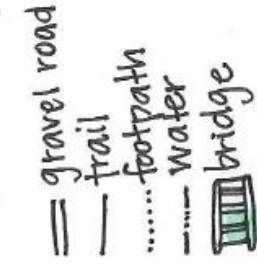 gravel road
trail
footpath
water
bridge